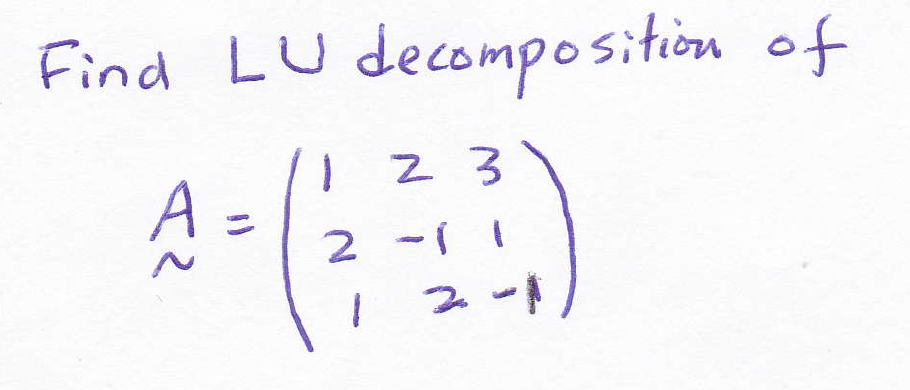 Find LU decomposition of
A = ( 1 2 3
2 -1 1
1 2 -1 )
~